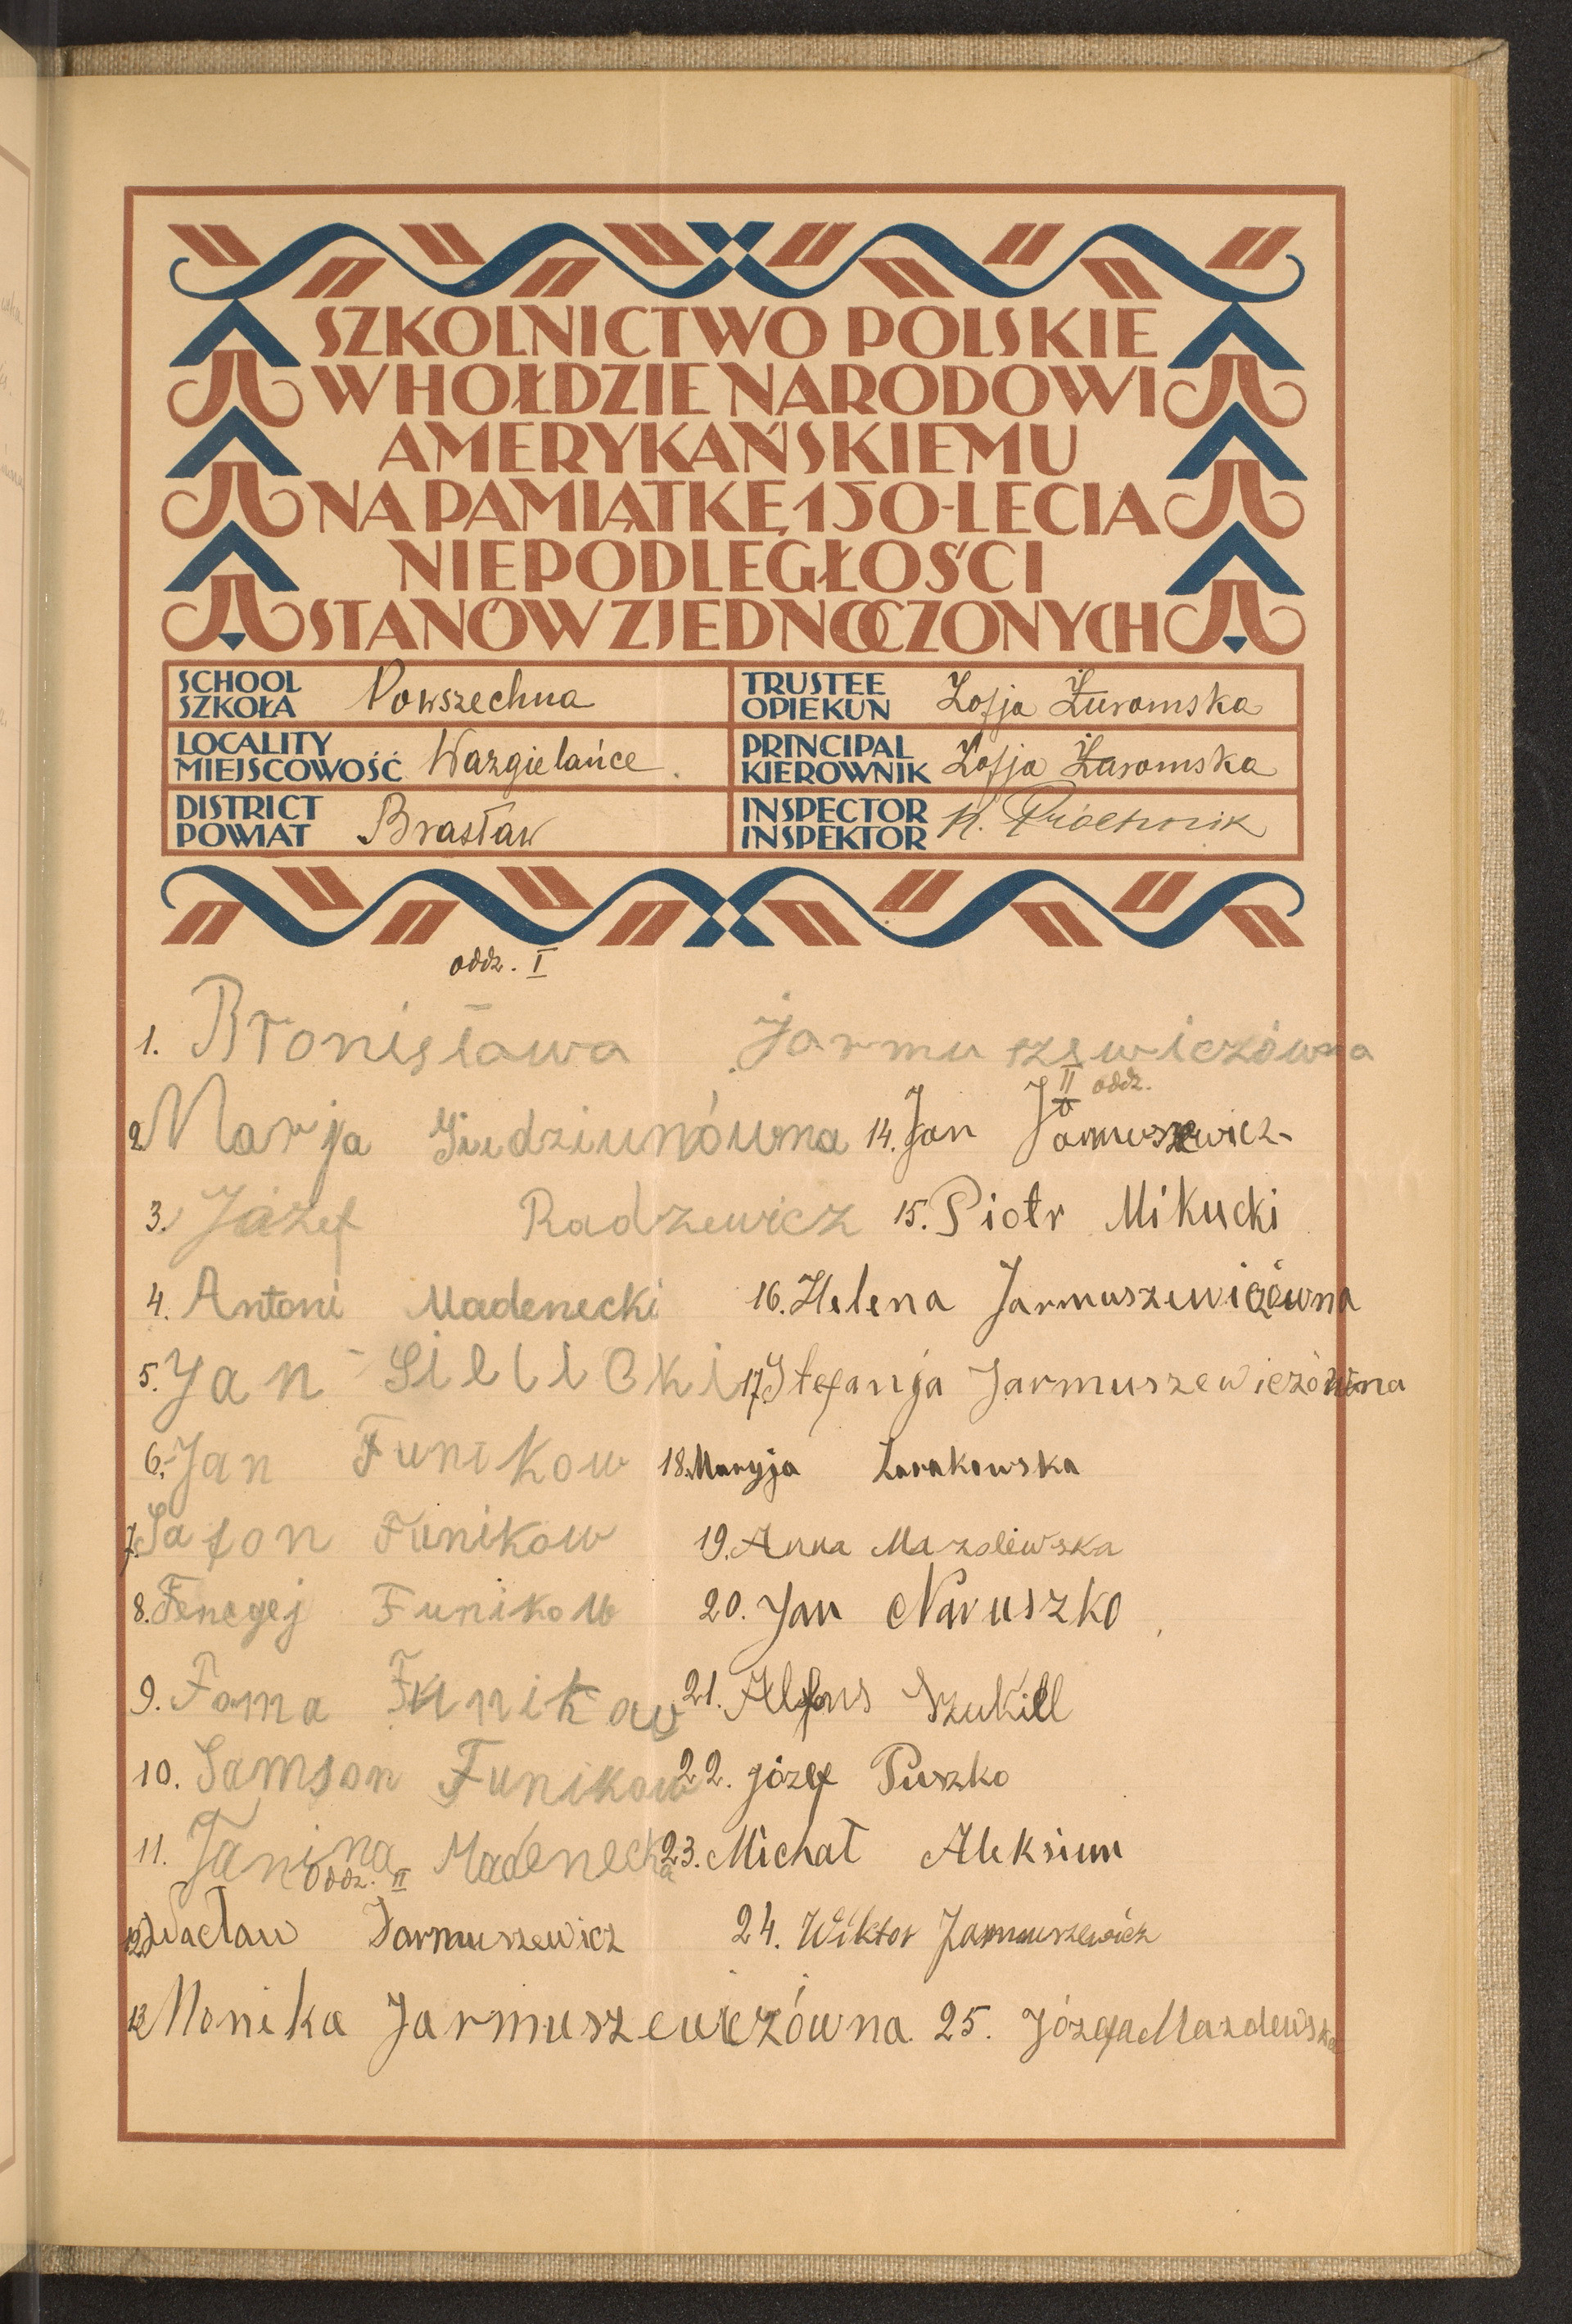 SZKOLNICTWO POLSKIE
W HOŁDZIE NARODOWI
AMERYKAŃSKIEMU
NA PAMIĄTKĘ 150-LECIA
NIEPODLEGŁOŚCI
STANÓW ZJEDNOCZONYCH
SCHOOL
SZKOŁA Powszechna
TRUSTEE
OPIEKUN Zofja Żuromska
LOCALITY
MIEJSCOWOŚĆ Wazgielańce.
PRINCIPAL
KIEROWNIK Zofja Żuromska
DISTRICT
POWIAT Brasław
INSPECTOR
INSPEKTOR K. Próchnik
oddz. I
1. Bronisława Jarmuszewiczówna
2 Marja Giedziunówna
3. Józef Radzewicz
4. Antoni Madenecki
5. Jan Silicki
6. Jan Funikow
7. Safon Funikow
8. Fenegej Funikow
9. Foma Funikow
10. Samson Funikow
11. Janina Madenecka
Oddz. II
12. Wacław Jarmuszewicz
13 Monika Jarmuszewiczówna
II oddz.
14. Jan Jarmuszewicz
15. Piotr Mikucki
16. Helena Jarmuszewiczówna
17 Stefanja Jarmuszewiczówna
18. Maryja Zarakowska
19. Anna Mazolewska
20. Jan Naruszko
21. Alfons Szukiel
22. józef Puszko
23. Michał Aleksiun
24. Wiktor Jarmuszewicz
25. Józefa Mazolewska